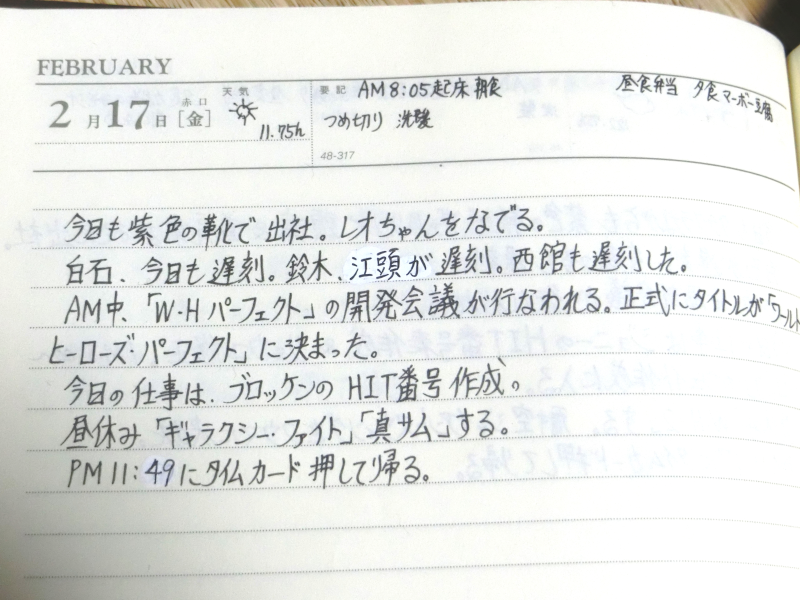 FEBRUARY
2月17日 赤口 [金] 天気 11.75h
要記 AM8:05起床 朝食 昼食弁当 夕食マーボー豆腐
つめ切り 洗髪
48-317
今日も紫色の靴で出社。レオちゃんをなでる。
白石、今日も遅刻。鈴木、江頭が遅刻。西館も遅刻した。
AM中、「W・Hパーフェクト」の開発会議が行なわれる。正式にタイトルが「ワールド
ヒーローズ・パーフェクト」に決まった。
今日の仕事は、ブロッケンのHIT番号作成。
昼休み「ギャラクシー・ファイト」「真サム」する。
PM11:49にタイムカード押して帰る。